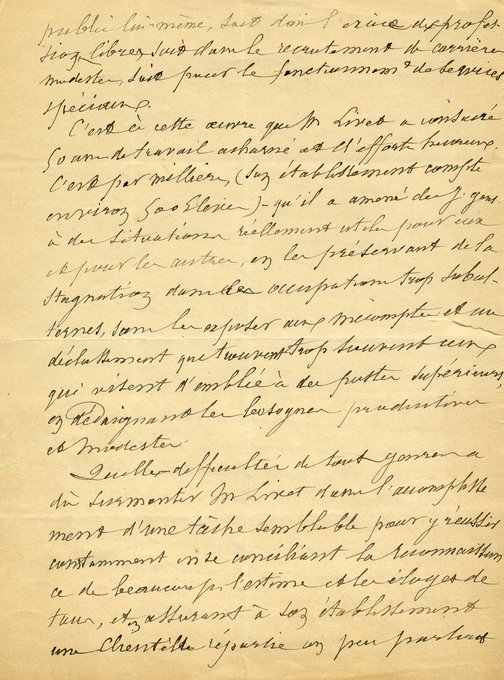 public lui-même, soit dans l'exercice des profes-
sions libres, soit dans le recrutement de carrières
modestes, soit pour le fonctionnemt de services
spéciaux.
C'est à cette œuvre que M Livet a consacré
50 ans de travail acharné et d'efforts heureux.
C'est par milliers, (son établissement compte
environ 500 Elèves) - qu'il a amené des j. gens
à des situations réellement utiles pour eux
et pour les autres, en les préservant de la
stagnation dans les occupations trop subal-
ternes, sans les exposer aux mécomptes et au
déclassement que trouvent trop souvent ceux
qui visent d'emblée à des postes supérieurs,
en dédaignant les besognes productives
et modestes.
Quelles difficultés de tout genre a
dû surmonter M Livet dans l'accomplisse
ment d'une tâche semblable pour y réussir
constamment en se conciliant la reconnaissan
ce de beaucoup, l'estime et les éloges de
tous, et en assurant à son établissement
une Clientèle répartie un peu partout